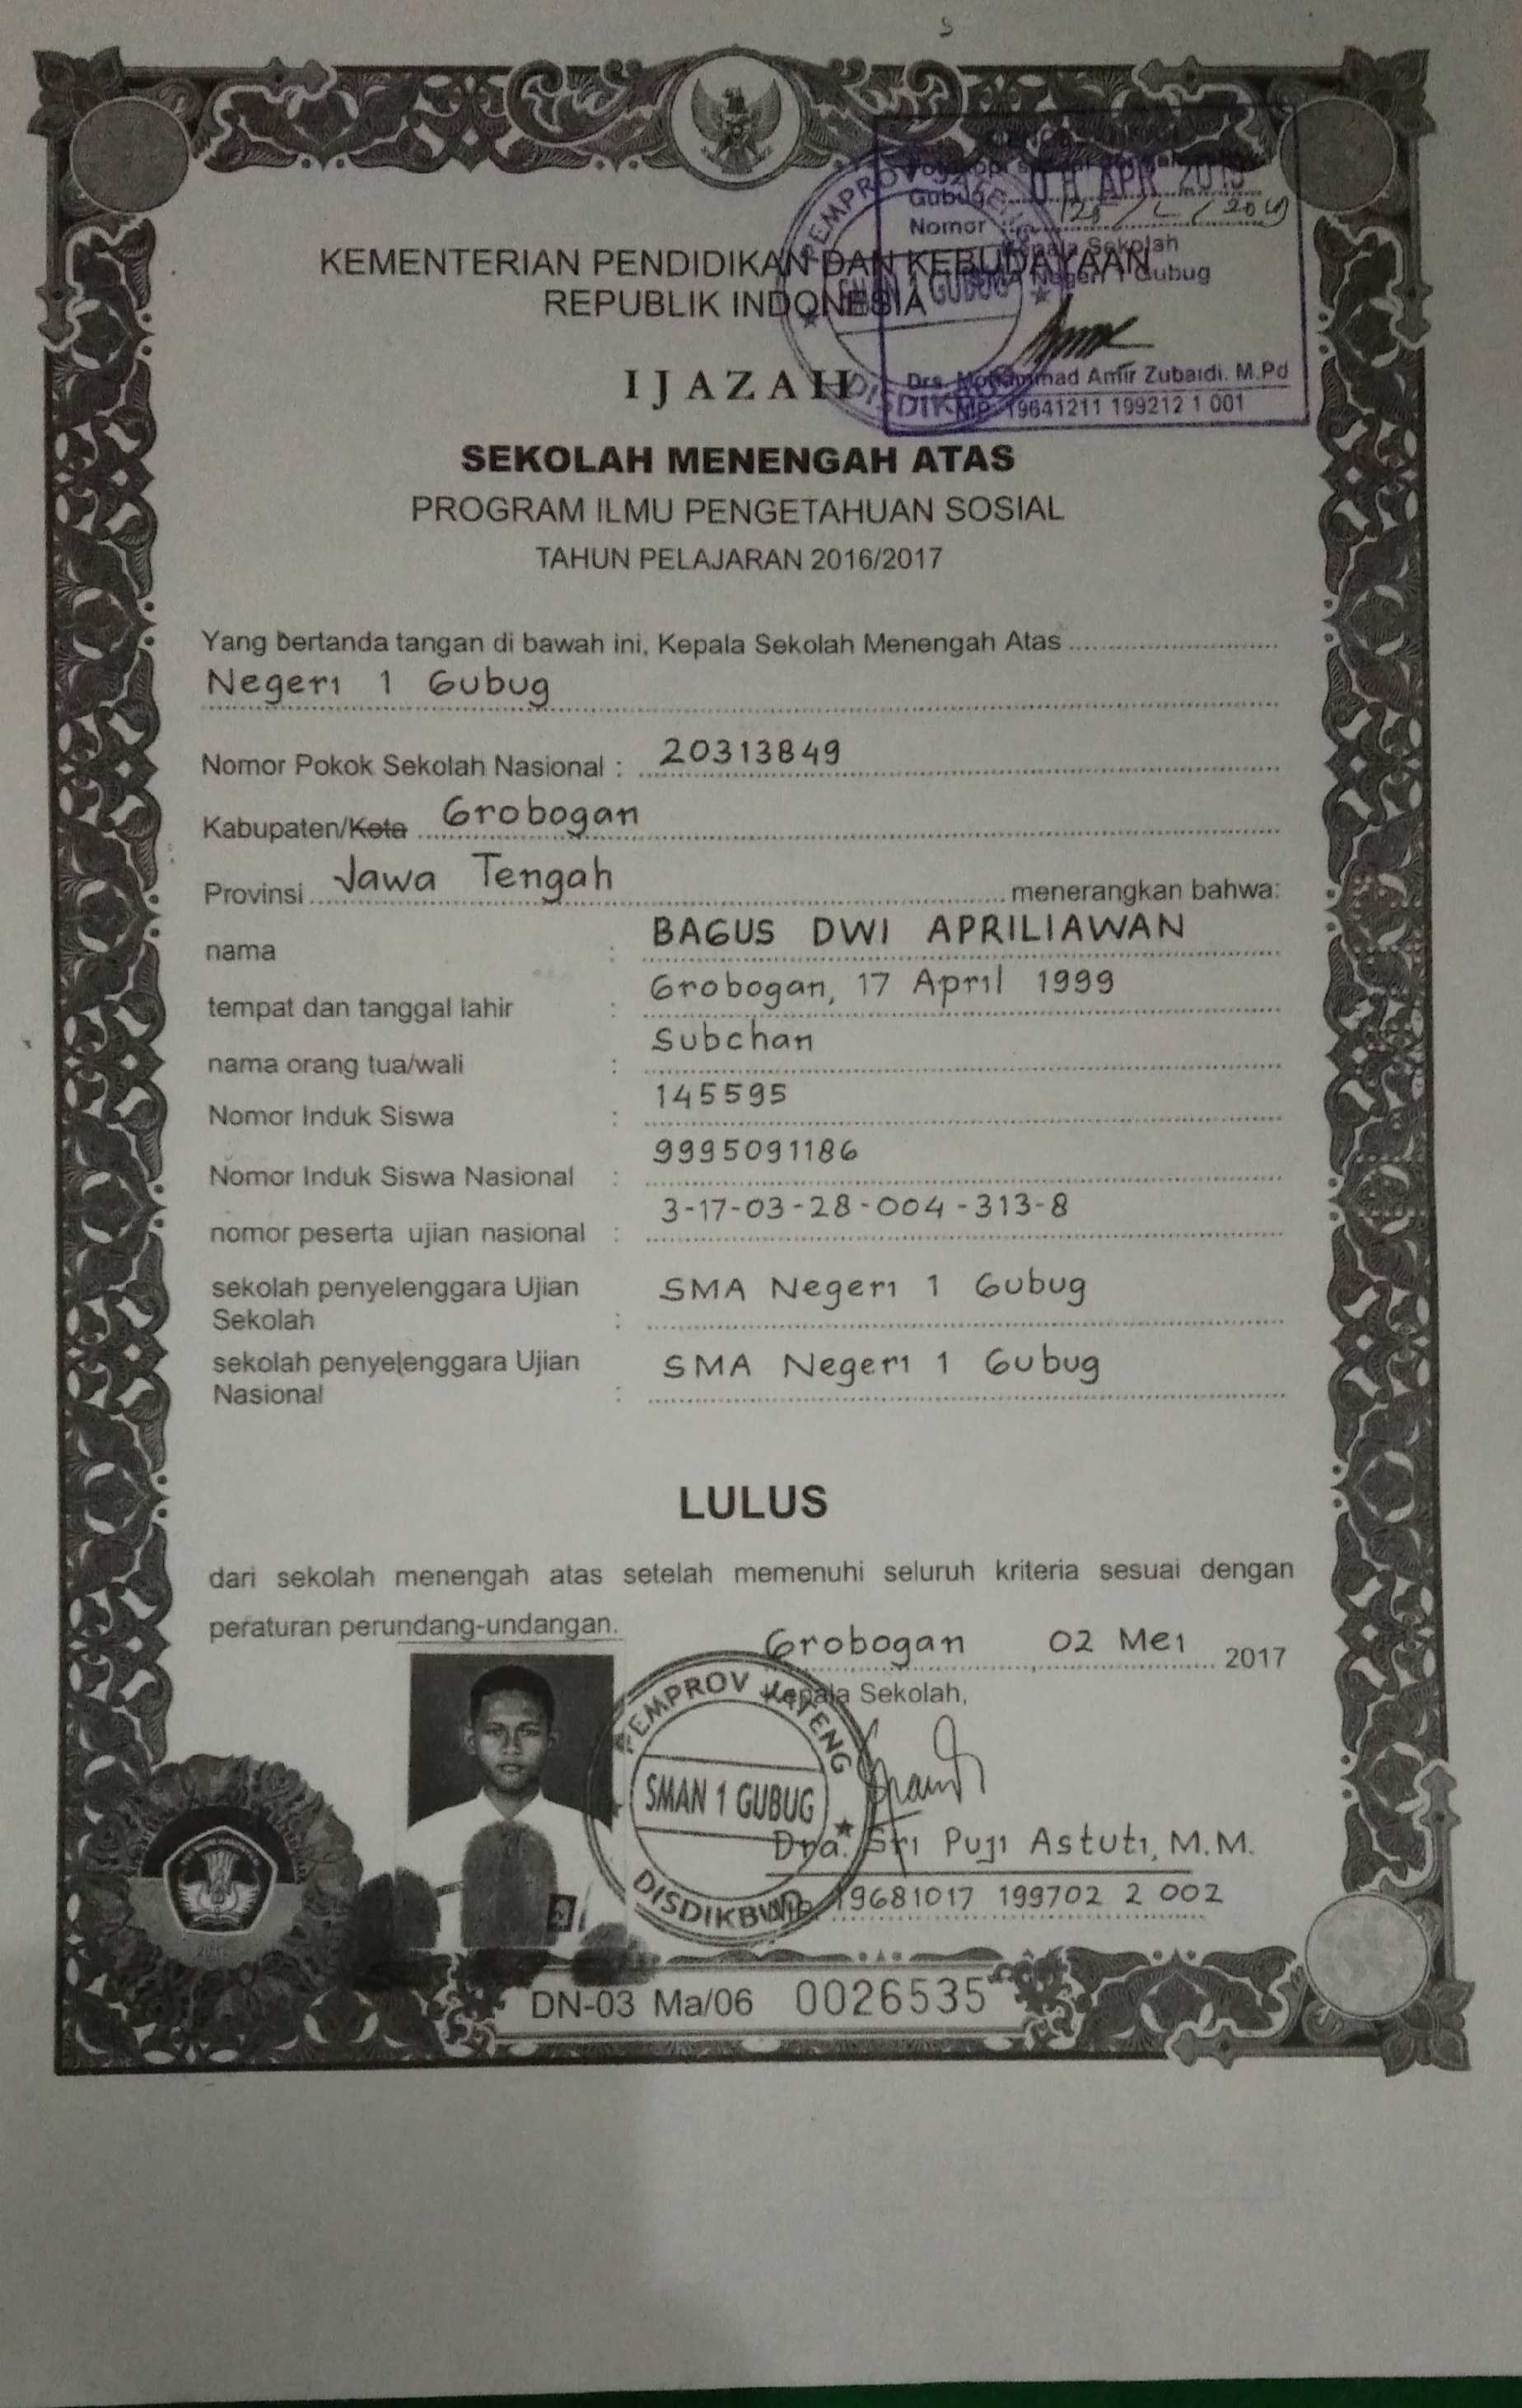 Gubug
Nomor
Kepala Sekolah
Negeri 1 Gubug
Drs. Mohammad Amir Zubaidi. M.Pd
NIP. 19641211 199212 1 001
PEMPROV JATENG
SMAN 1 GUBUG
DISDIKBUD
KEMENTERIAN PENDIDIKAN DAN KEBUDAYAAN
REPUBLIK INDONESIA
IJAZAH
SEKOLAH MENENGAH ATAS
PROGRAM ILMU PENGETAHUAN SOSIAL
TAHUN PELAJARAN 2016/2017
Yang bertanda tangan di bawah ini, Kepala Sekolah Menengah Atas
Negeri 1 Gubug
Nomor Pokok Sekolah Nasional : 20313849
Kabupaten/Kota Grobogan
Provinsi Jawa Tengah menerangkan bahwa:
nama : BAGUS DWI APRILIAWAN
tempat dan tanggal lahir : Grobogan, 17 April 1999
nama orang tua/wali : Subchan
Nomor Induk Siswa : 145595
Nomor Induk Siswa Nasional : 9995091186
nomor peserta ujian nasional : 3-17-03-28-004-313-8
sekolah penyelenggara Ujian
Sekolah : SMA Negeri 1 Gubug
sekolah penyelenggara Ujian
Nasional : SMA Negeri 1 Gubug
LULUS
dari sekolah menengah atas setelah memenuhi seluruh kriteria sesuai dengan
peraturan perundang-undangan.
Grobogan, 02 Mei 2017
Kepala Sekolah,
PEMPROV JATENG
SMAN 1 GUBUG
DISDIKBUD
Dra. Sri Puji Astuti, M.M.
NIP. 19681017 199702 2 002
DN-03 Ma/06 0026535